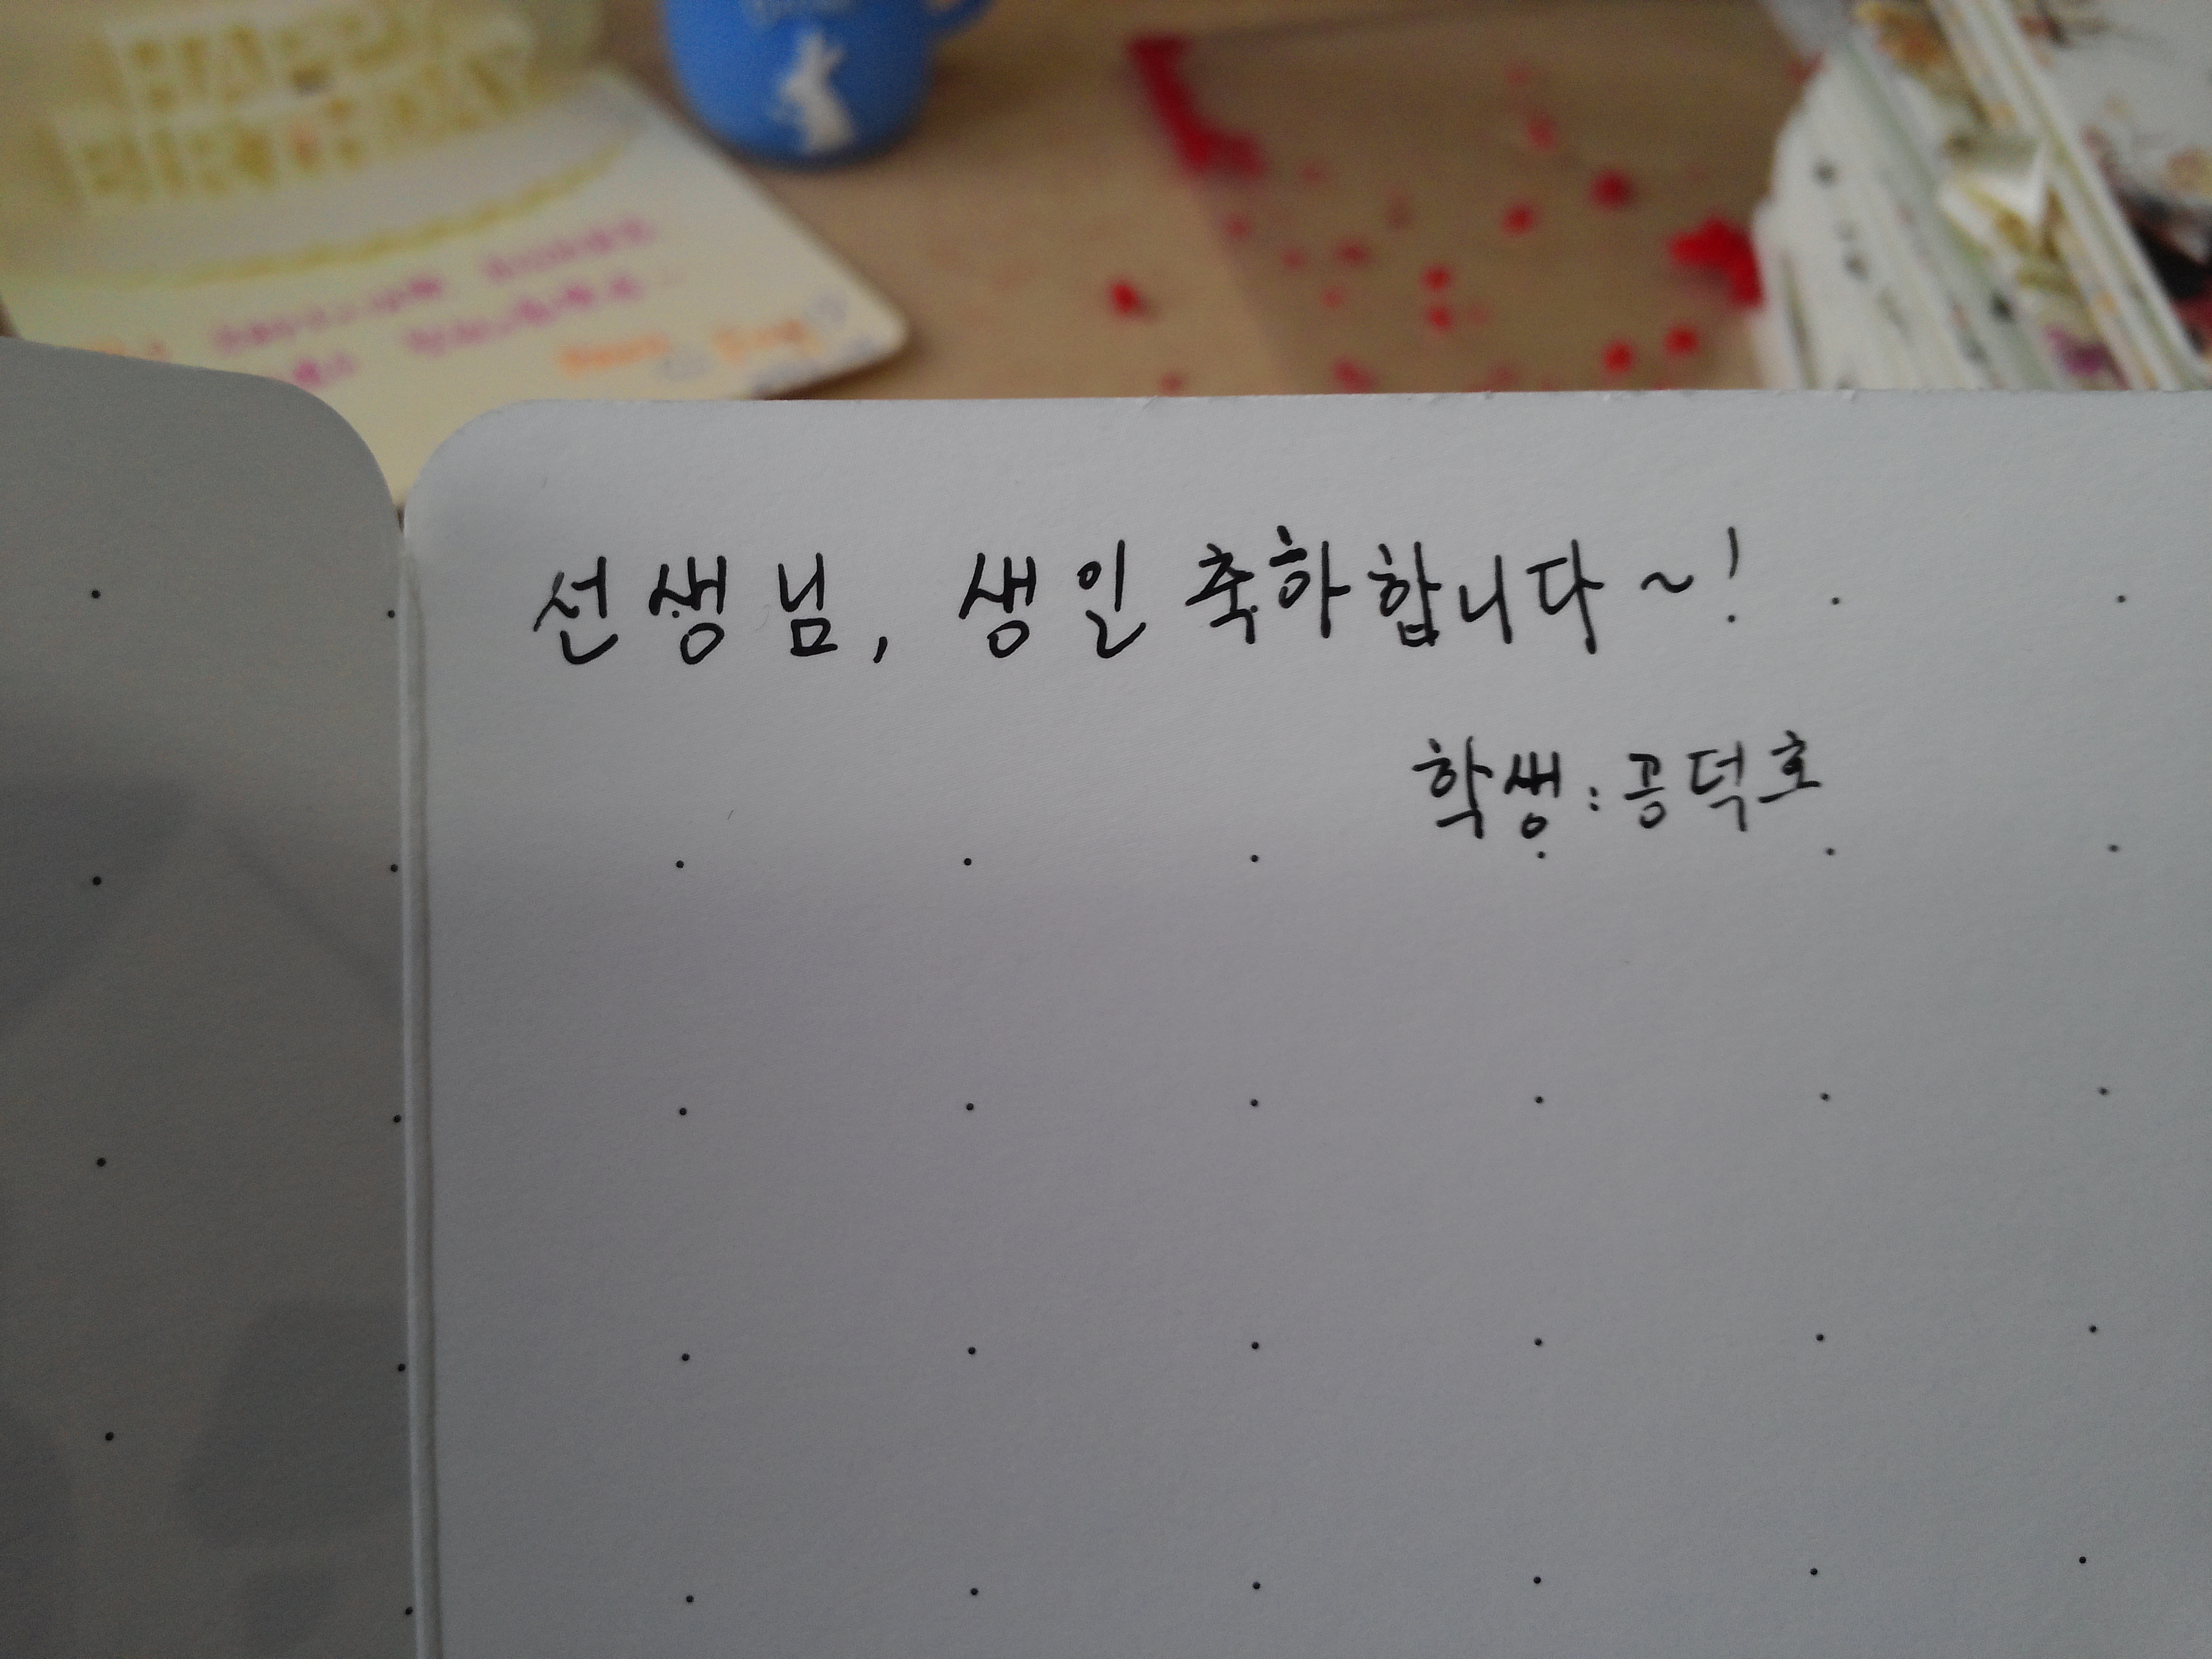 HAPPY
BIRTHDAY
선생님, 생일 축하합니다~!
학생: 공덕호